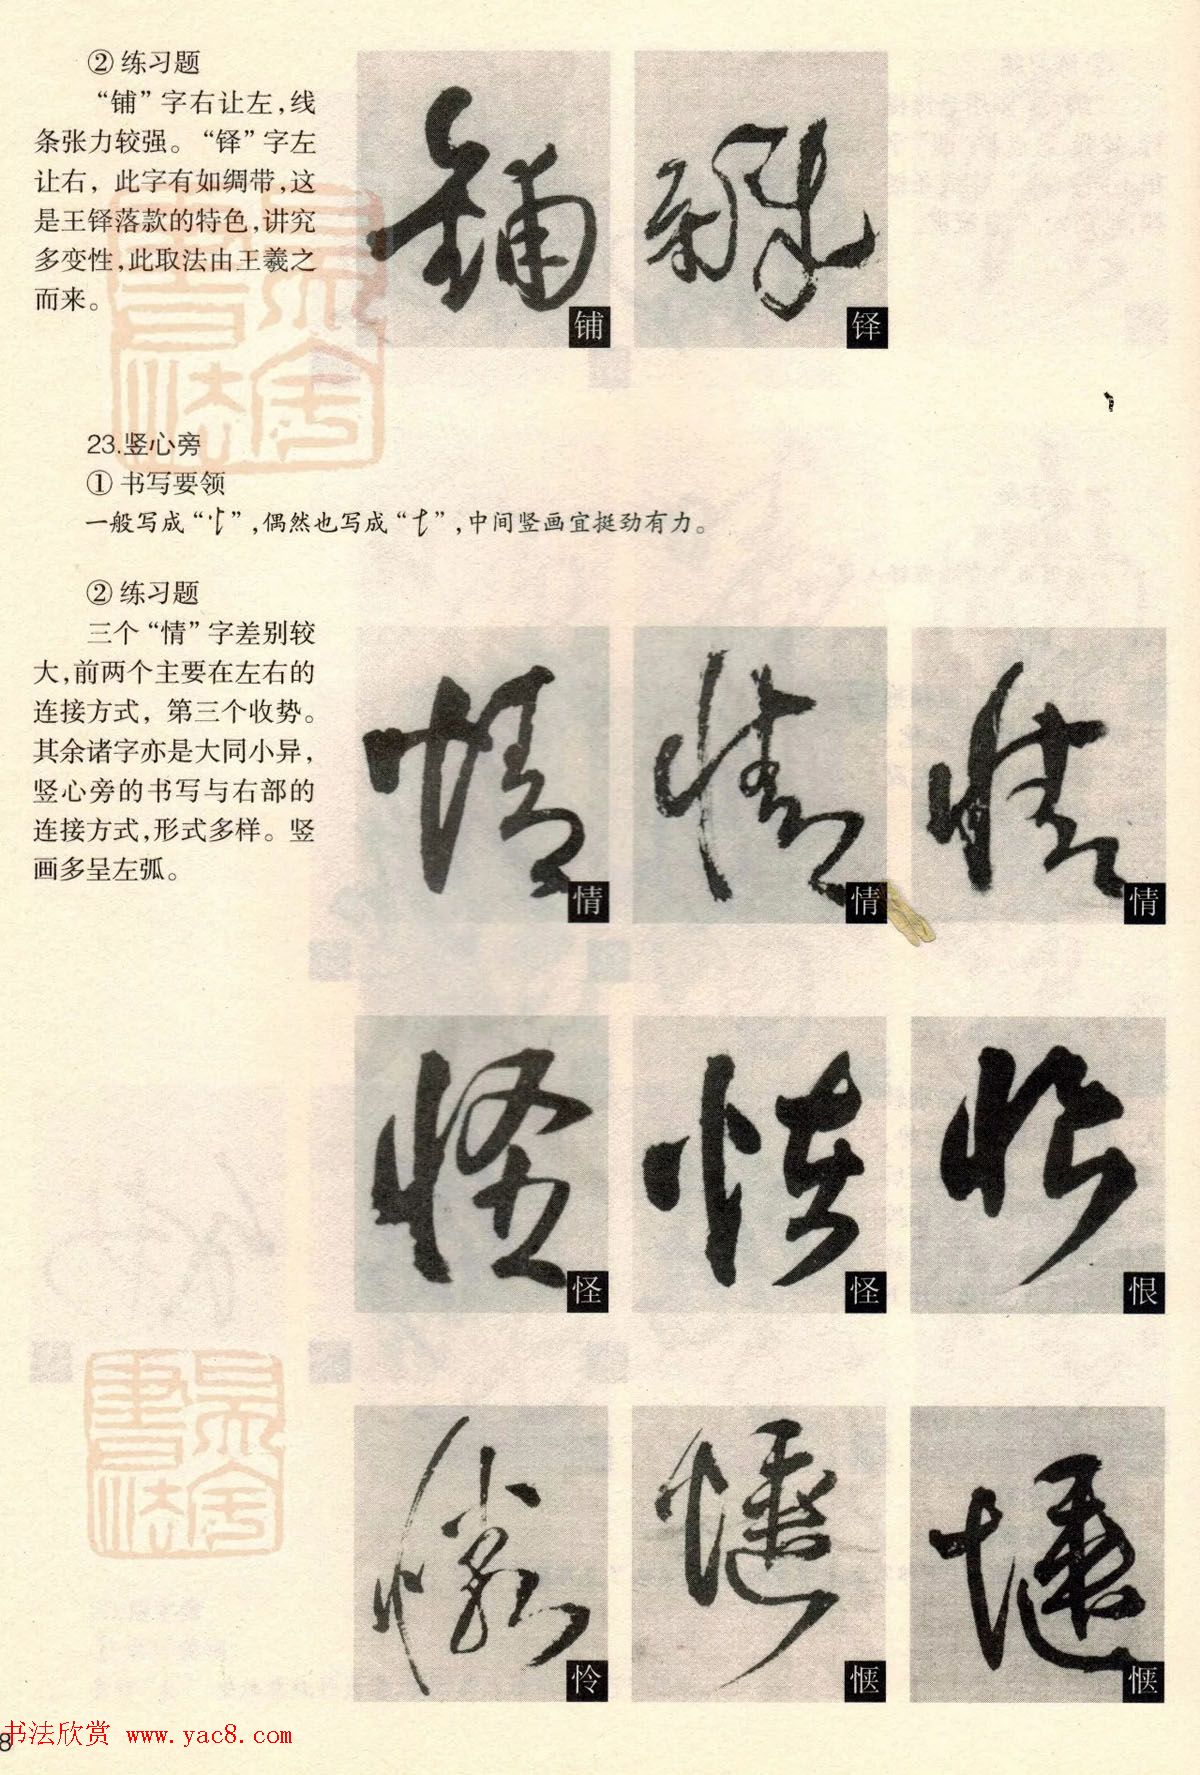 ② 练习题
“铺”字右让左,线
条张力较强。“铎”字左
让右，此字有如绸带,这
是王铎落款的特色,讲究
多变性,此取法由王羲之
而来。
铺
铎
23.竖心旁
① 书写要领
一般写成“忄”,偶然也写成“”,中间竖画宜挺劲有力。
② 练习题
三个“情”字差别较
大,前两个主要在左右的
连接方式，第三个收势。
其余诸字亦是大同小异,
竖心旁的书写与右部的
连接方式,形式多样。竖
画多呈左弧。
情
情
情
怪
怪
恨
怜
惬
惬
书法欣赏 www.yac8.com
8